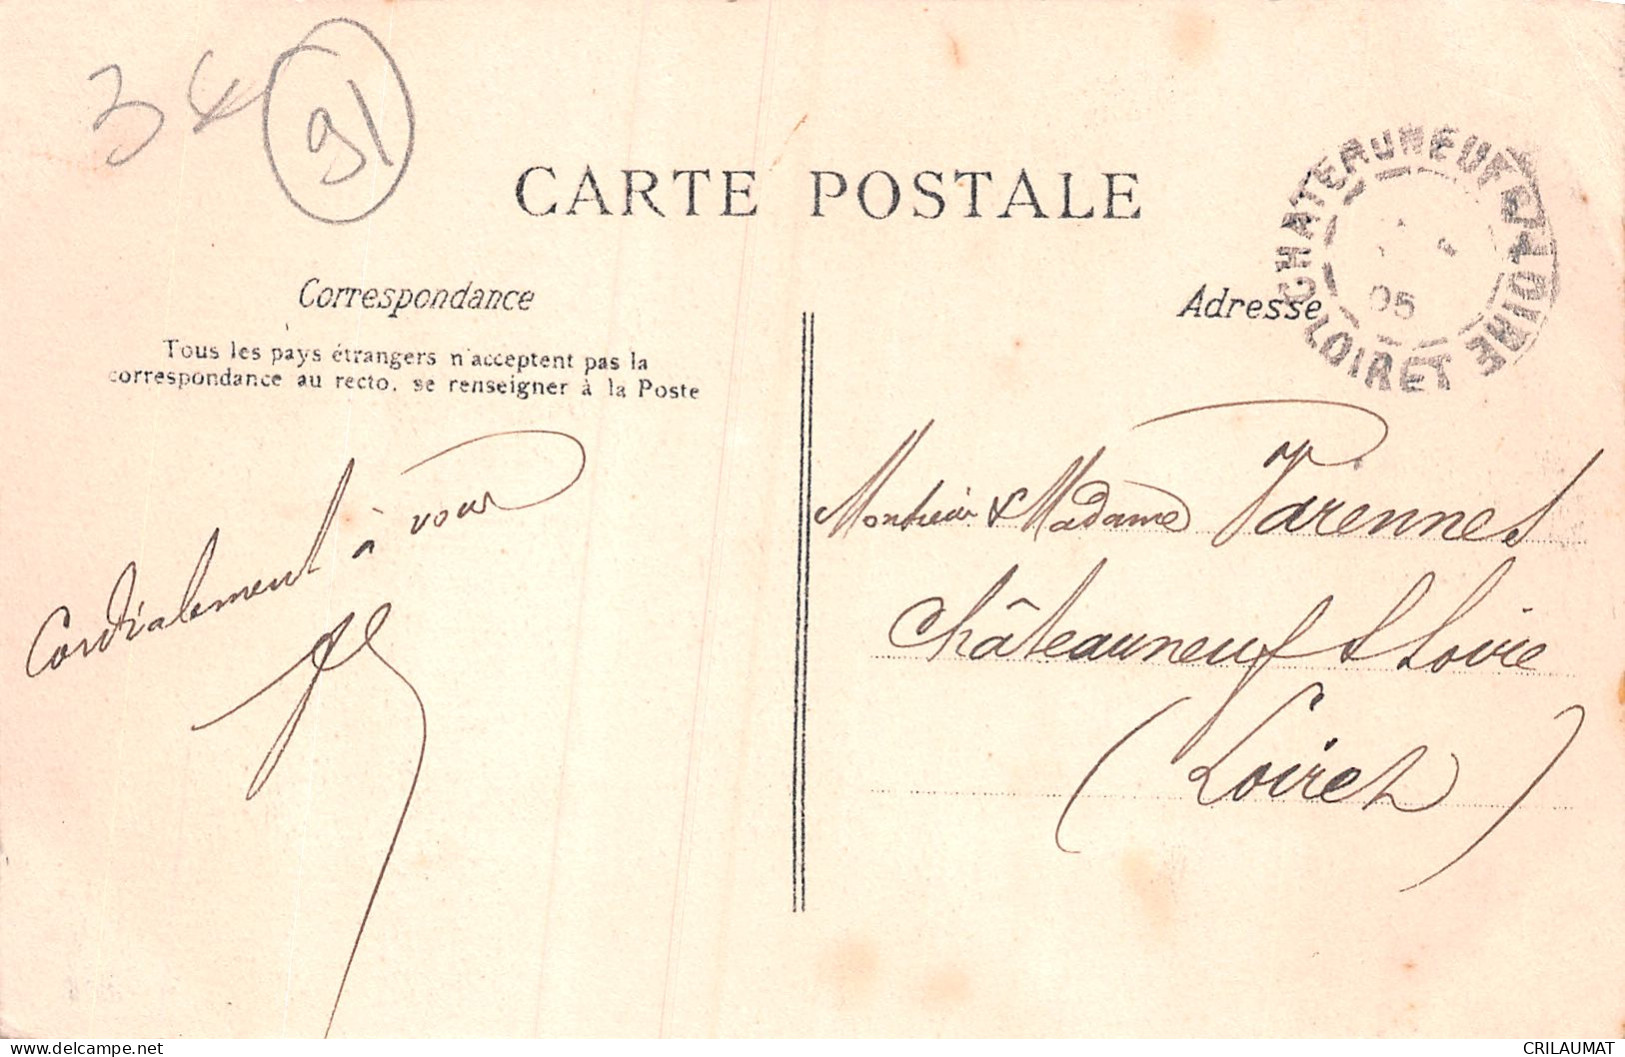 34 91
CARTE POSTALE
CHATEAUNEUF S LOIRE
LOIRET
05
Correspondance
Adresse
Tous les pays étrangers n'acceptent pas la
correspondance au recto, se renseigner à la Poste
Cordialement à vous
Monsieur & Madame Parennes
Châteauneuf s Loire
(Loiret)
delcampe.net
CRILAUMAT